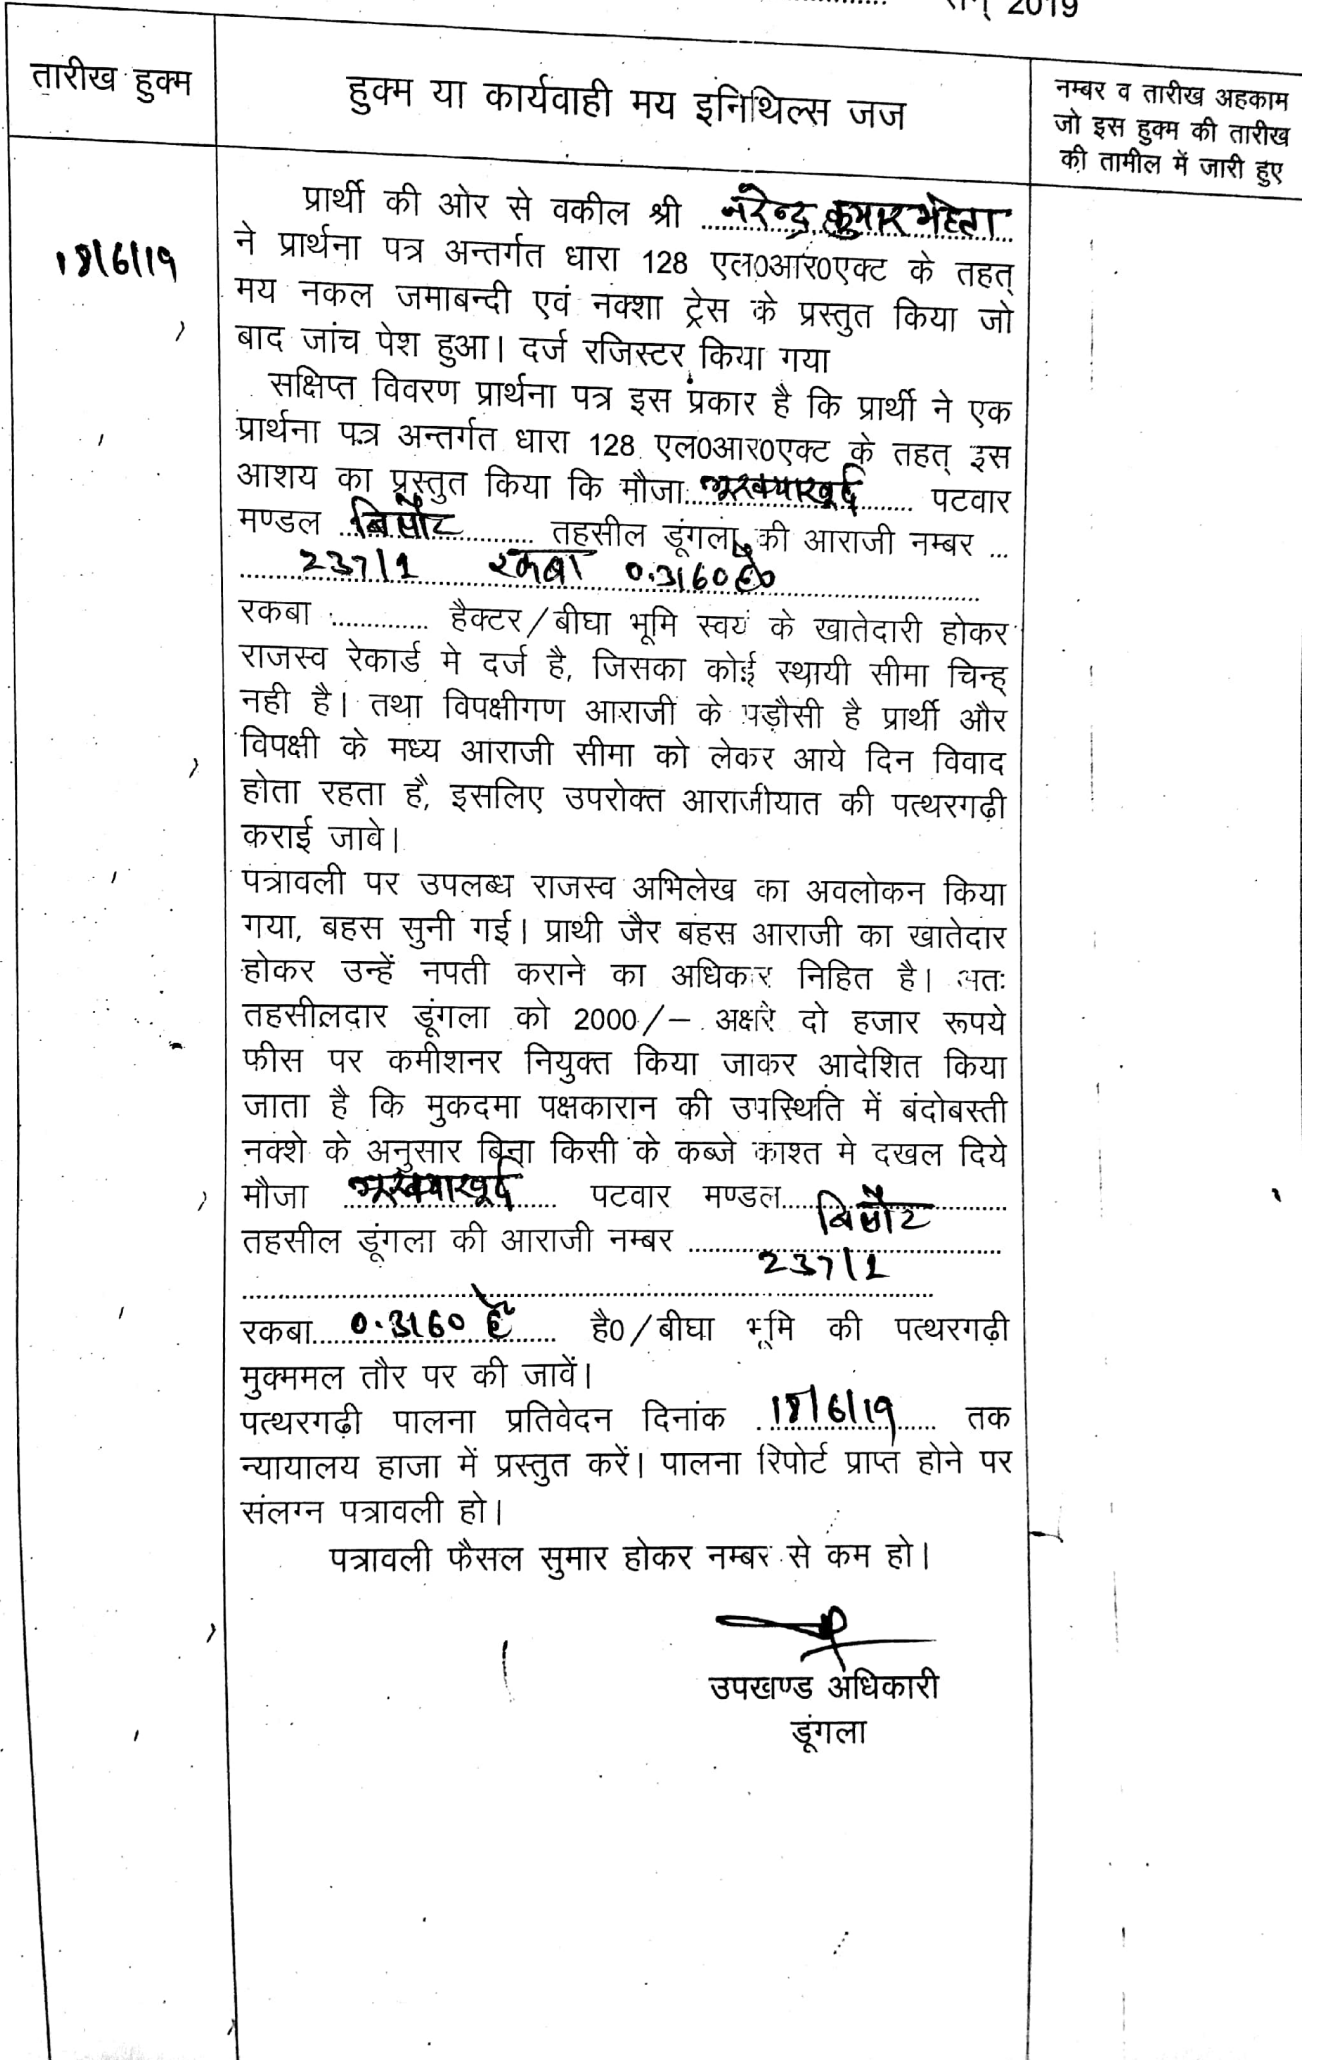 सन् 2019
तारीख हुक्म
हुक्म या कार्यवाही मय इनिथिल्स जज
नम्बर व तारीख अहकाम
जो इस हुक्म की तारीख
की तामील में जारी हुए
18/6/19
प्रार्थी की ओर से वकील श्री नरेन्द्र कुमार मेहता
ने प्रार्थना पत्र अन्तर्गत धारा 128 एल0आर0एक्ट के तहत्
मय नकल जमाबन्दी एवं नक्शा ट्रेस के प्रस्तुत किया जो
बाद जांच पेश हुआ। दर्ज रजिस्टर किया गया
सक्षिप्त विवरण प्रार्थना पत्र इस प्रकार है कि प्रार्थी ने एक
प्रार्थना पत्र अन्तर्गत धारा 128 एल0आर0एक्ट के तहत् इस
आशय का प्रस्तुत किया कि मौजा ............ पटवार
मण्डल ............ तहसील डूंगला की आराजी नम्बर ...
237/1 रकबा 0.3160 है0
रकबा ............ हैक्टर/बीघा भूमि स्वयं के खातेदारी होकर
राजस्व रेकार्ड मे दर्ज है, जिसका कोई स्थायी सीमा चिन्ह्
नही है। तथा विपक्षीगण आराजी के पड़ौसी है प्रार्थी और
विपक्षी के मध्य आराजी सीमा को लेकर आये दिन विवाद
होता रहता है, इसलिए उपरोक्त आराजीयात की पत्थरगढ़ी
कराई जावे।
पत्रावली पर उपलब्ध राजस्व अभिलेख का अवलोकन किया
गया, बहस सुनी गई। प्राथी जैर बहस आराजी का खातेदार
होकर उन्हें नपती कराने का अधिकार निहित है। अतः
तहसीलदार डूंगला को 2000/- अक्षरे दो हजार रूपये
फीस पर कमीशनर नियुक्त किया जाकर आदेशित किया
जाता है कि मुकदमा पक्षकारान की उपस्थिति में बंदोबस्ती
नक्शे के अनुसार बिना किसी के कब्जे काश्त मे दखल दिये
मौजा ............ पटवार मण्डल ............
तहसील डूंगला की आराजी नम्बर ............
237/1
रकबा 0.3160 है है0/बीघा भूमि की पत्थरगढ़ी
मुक्ममल तौर पर की जावें।
पत्थरगढ़ी पालना प्रतिवेदन दिनांक 18/6/19 तक
न्यायालय हाजा में प्रस्तुत करें। पालना रिपोर्ट प्राप्त होने पर
संलग्न पत्रावली हो।
पत्रावली फैसल सुमार होकर नम्बर से कम हो।
उपखण्ड अधिकारी
डूंगला